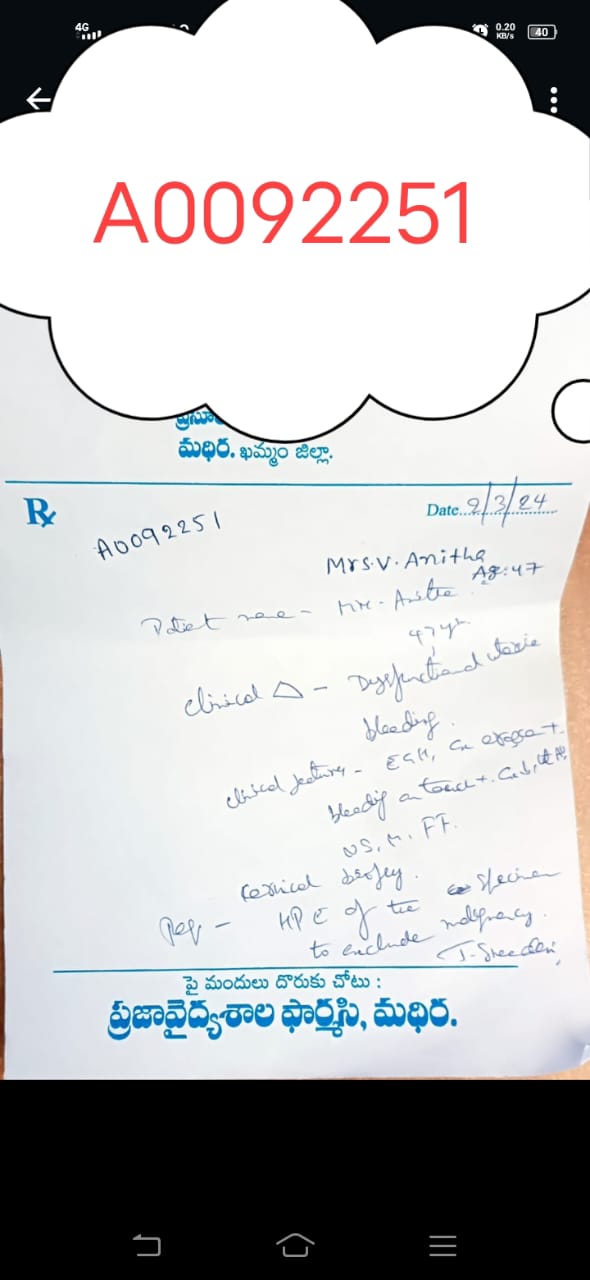 4G
0.20
KB/s
40
A0092251
మధిర. ఖమ్మం జిల్లా.
Rx
Date...2/3/24
A0092251
Mrs.V. Anitha
Ag:47
Patiet name -
47 yr
Clinical △ - Dysfunctional uterine
bleeding.
clinical features -
bleeding on touch +.
NS, M, FF.
Cervical biopsy.
Req - HPE of the specimen
to exclude malignancy.
పై మందులు దొరుకు చోటు :
ప్రజావైద్యశాల ఫార్మసి, మధిర.